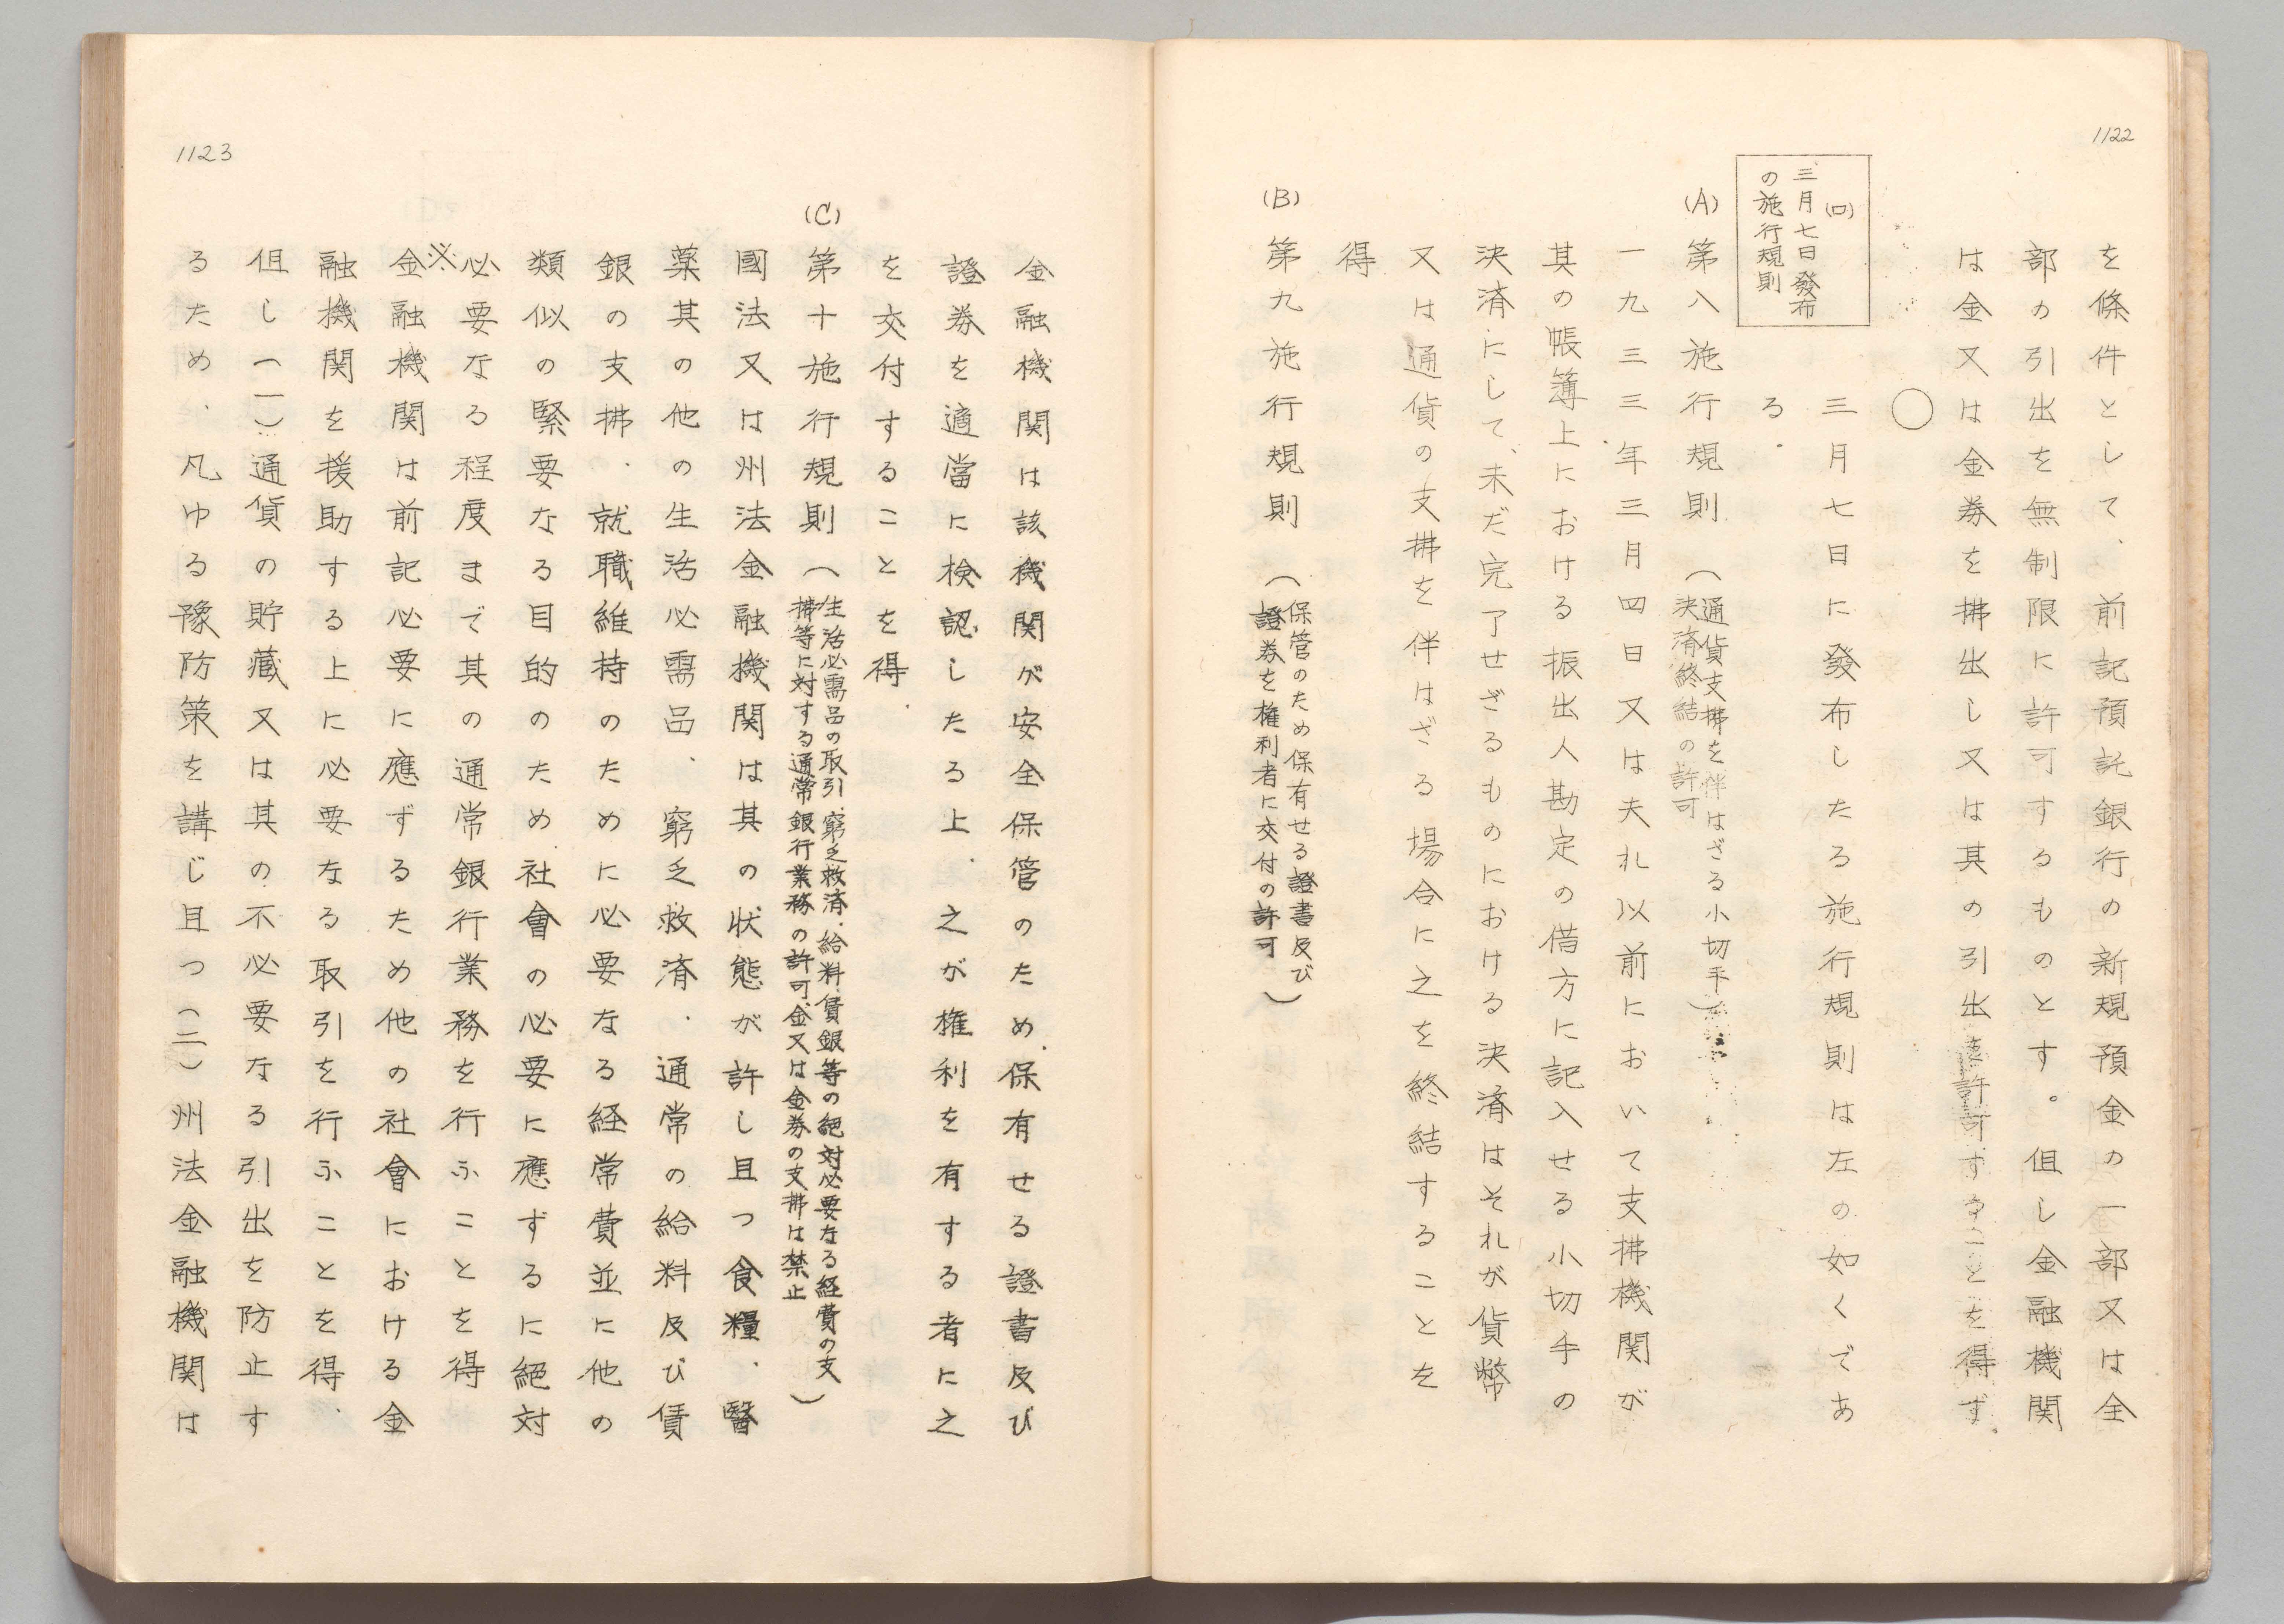 1122
を條件として、前記預託銀行の新規預金の一部又は全
部の引出を無制限に許可するものとす。但し金融機関
は金又は金券を拂出し又は其の引出を許可することを得ず。
○
(ロ)
三月七日發布
の施行規則
三月七日に發布したる施行規則は左の如くであ
る.
(A)
第八施行規則（通貨支拂を伴はざる小切手
決済終結の許可）
一九三三年三月四日又は夫れ以前において支拂機関が
其の帳簿上における振出人勘定の借方に記入せる小切手の
決済にして、未だ完了せざるものにおける決済はそれが貨幣
又は通貨の支拂を伴はざる場合に之を終結することを
得
(B)
第九施行規則（保管のため保有せる證書及び
證券を権利者に交付の許可）
金融機関は該機関が安全保管のため.保有せる證書及び
證券を適當に検認したる上.之が権利を有する者に之
を交付することを得.
(C)
第十施行規則（生活必需品の取引.窮乏救済.給料.賃銀等の絶対必要なる経費の支
拂等に対する通常銀行業務の許可.金又は金券の支拂は禁止）
國法又は州法金融機関は其の状態が許し且つ食糧.醫
薬其の他の生活必需品.窮乏救済.通常の給料及び賃
銀の支拂.就職維持のために必要なる経常費並に他の
類似の緊要なる目的のため.社會の必要に應ずるに絶対
必要なる程度まで其の通常銀行業務を行ふことを得
※
金融機関は前記必要に應ずるため他の社會における金
融機関を援助する上に必要なる取引を行ふことを得.
但し（一）通貨の貯藏又は其の不必要なる引出を防止す
るため.凡ゆる豫防策を講じ且つ（二）州法金融機関は
1123